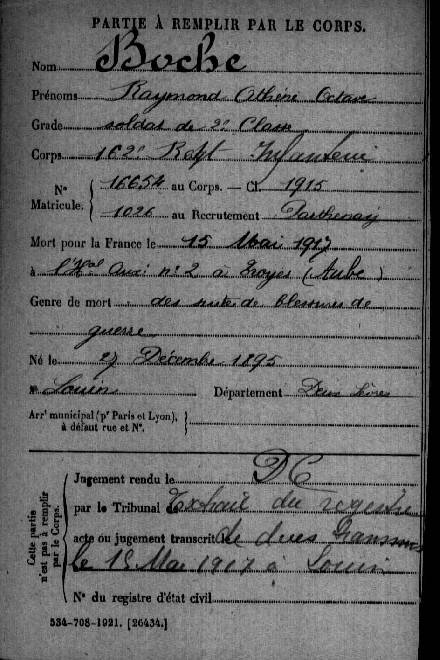 PARTIE À REMPLIR PAR LE CORPS.
Nom Boche
Prénoms Raymond Athéné Octave
Grade soldat de 2e Classe
Corps 162e Regt Infanterie
No 16654 au Corps. — Cl. 1915
Matricule. 1026 au Recrutement Parthenay
Mort pour la France le 15 Mai 1917
à l'Hal Auxre no 2 à Troyes (Aube)
Genre de mort des suites de blessures de
guerre
Né le 27 Décembre 1895
à Louin Département Deux Sèvres
Arrt municipal (pr Paris et Lyon),
à défaut rue et No.
Cette partie
n'est pas à remplir
par le Corps.
Jugement rendu le DC
par le Tribunal Extrait du registre
acte ou jugement transcrit le de
le 15 Mai 1917 à Louin
No du registre d'état civil
534-708-1921. [26434.]